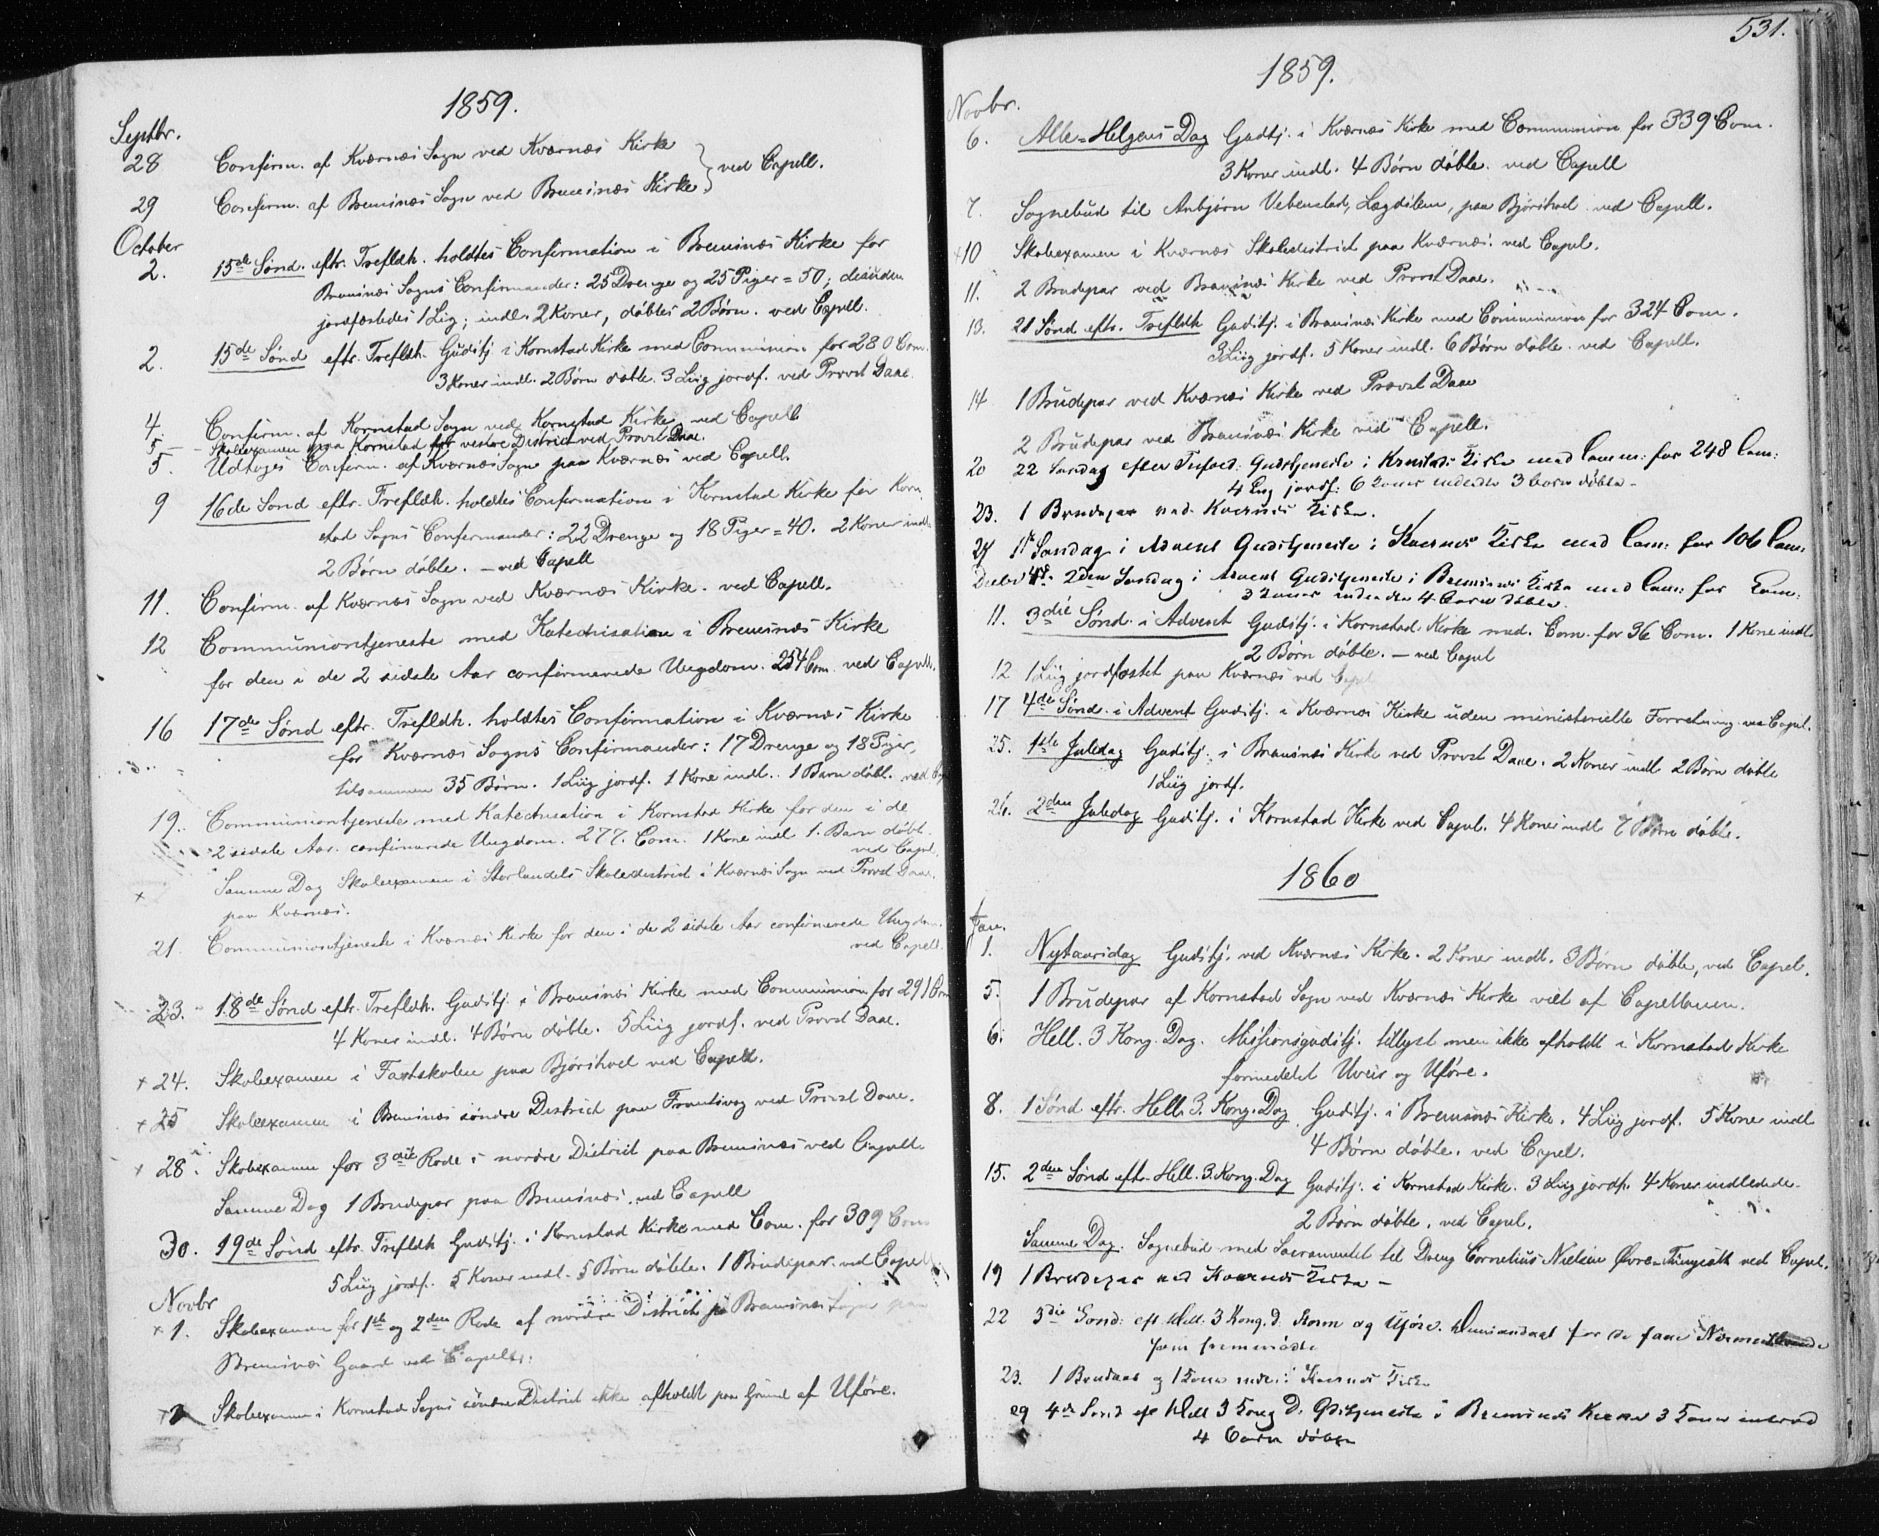 1859.
Septbr.
28 Confirm. af Kværnæs Sogn ved Kværnæs Kirke } ved Capell.
29 Confirm. af Bremsnæs Sogn ved Bremsnæs Kirke
October
2. 15de Sønd. eftr. Trefldh. holdtes Confirmation i Bremsnæs Kirke for
Bremsnæs Sogns Confirmander: 25 Drenge og 25 Piger = 50; desuden
jordfæstedes 1 Lig; indl. 2 Koner, døbtes 2 Børn. ved Capell.
2. 15de Sønd eftr. Trefldh. Gudstj i Kornstad Kirke med Communion for 280 Com.
3 Koner indl. 2 Børn døbte. 3 Liig jordf. ved Provst Daae.
4. Confirm. af Kornstad Sogn ved Kornstad Kirke ved Capell
5 — Skoleexamen paa Kornstad for vestre District ved Provst Daae.
5. Udtoges Confirm. af Kværnæs Sogn paa Kværnæs ved Capell.
9 16de Sond eftr. Trefldh. holdtes Confirmation i Kornstad Kirke for Korn
stad Sogns Confermander: 22 Drenge og 18 Piger = 40. 2 Koner indl.
2 Børn døbte. — ved Capell
11. Confirm. af Kværnæs Sogn ved Kværnæs Kirke. ved Capell.
12 Communiontjeneste med Katechisation i Bremsnæs Kirke
for den i de 2 sidste Aar confirmerede Ungdom. 254 Com. ved Capell.
16 17de Sønd eftr. Trefldh. holdtes Confirmation i Kværnæs Kirke
for Kværnæs Sogns Confirmander: 17 Drenge og 18 Piger,
tilsammen 35 Børn. 1 Liig jordf. 1 Kone indl. 1 Barn døbt. ved
19. Communiontjeneste med Katechisation i Kornstad Kirke for den i de
2 sidste Aar confirmerede Ungdom. 277. Com. 1 Kone indl 1. Barn døbt.
ved Capel.
+ Samme Dag Skoleexamen i Storlandets Skoledistrict i Kværnæs Sogn ved Provst Daae.
paa Kværnæs.
21. Communiontjeneste i Kværnæs Kirke for den i de 2 sidste Aar confirmerede Ungdom.
ved Capell.
23. 18de Sønd eftr. Trefldh. Gudstj. i Bremsnæs Kirke med Communion for 291 Com
4 Koner indl. 4 Børn døbte. 5 Liig jordf. ved Provst Daae.
+ 24. Skoleexamen i Fastskolen paa Bjørshvel ved Capell.
+ 25 Skoleexamen i Bremsnæs söndre District paa ved Provst Daae.
+ 28. Skoleexamen for 3die Rode i nordre District paa Bremsnæs ved Capell
Samme Dag 1 Brudepar paa Bremsnæs. ved Capell
30. 19de Sønd eftr. Trefldh Gudstj. i Kornstad Kirke med Com. for 309 Com
5 Liig jordf. 5 Koner indl. 5 Børn døbte. 1 Brudepar. ved Capell
Novbr
+ 1. Skoleexamen for 1ste og 2den Rode af nordre District på Bremsnæs Sogn paa
Bremsnæs Gaard ved Capell.
+ 2 Skoleexamen i Kornstad Sogns söndre District ikke afholdt paa Grund af Uføre.
531.
1859.
Novbr.
6. Alle-Helgens Dag Gudtj. i Kværnæs Kirke med Communion for 339 Com.
3 Koner indl. 4 Børn døbte. ved Capell
7. Sognebud til Anbjörn Vebenstad, Lægdslem, paa Bjørshvel ved Capell.
+10 Skoleexamen i Kværnæs Skoledistrict paa Kværnæs. ved Capel.
11. 2 Brudepar ved Bremsnæs Kirke ved Provst Daae.
13. 21 Sønd eftr. Trefldh Gudstj. i Bremsnæs Kirke med Communion for 324 Com.
3 Liig jordf. 5 Koner indl. 6 Børn døbte. ved Capell.
14 1 Brudepar ved Kværnæs Kirke ved Provst Daae
2 Brudepar ved Bremsnæs Kirke ved Capell.
20 22 Søndag efter Trefold: Gudstjeneste i Kornstad: Kirke med Comm: for 248 Com:
4 Lig jordf: 6 Koner indledte 3 børn døbte —
23. 1 Brudepar ved Kværnæs Kirke.
27 1ste Søndag i Advent Gudstjeneste i Kværnæs Kirke med Com: for 106 Com:
Decbr 4d. 2den Søndag i Advent Gudstjeneste i Bremsnæs Kirke med Com: for Com:
3 Koner indledte 4 Børn døbte.
11. 3die Sønd. i Advent Gudstj. i Kornstad Kirke med. Com. for 36 Com. 1 Kone indl
2 Børn døbte. — ved Capel
12 1 Liig jordfæstet paa Kværnæs ved Capel
17 4de Sønd. i Advent Gudstj. i Kværnæs Kirke uden ministerielle Forretning. ved Capel.
25. 1ste Juledag Gudstj. i Bremsnæs Kirke ved Provst Daae. 2 Koner indl 2 Børn døbte
1 Liig jordf.
26. 2den Juledag Gudstj. i Kornstad Kirke ved Capel. 4 Koner indl 7 Børn døbte.
1860
Jan.
1. Nytaarsdag Gudstj. ved Kværnæs Kirke. 2 Koner indl. 3 Børn døbte, ved Capel.
5. 1 Brudepar af Kornstad Sogn ved Kværnæs Kirke viet af Capellanen.
6. Hell. 3 Kong. Dag. Missionsgudstj. tillyst men ikke afholdt i Kornstad Kirke
formedelst Uveir og Uføre.
8. 1 Sønd eftr. Hell. 3. Kong. Dag Gudstj. i Bremsnæs Kirke. 4 Liig jordf. 5 Koner indl
4 Børn døbte. ved Capel.
15. 2den Sønd eftr. Hell. 3. Kong. Dag Gudstj. i Kornstad Kirke. 3 Liig jordf. 4 Koner indledede.
2 Børn døbte. ved Capel.
Samme Dag. Sognebud med Sacramentet til Dreng Cornelius Nielsen Øvre-Tungesætt ved Capel.
19 1 Brudepar ved Kværnæs Kirke —
22 3die Sønd: eft Hell. 3 Kong. d. Storm og Uføre. for de faae
som fremmødte
23. 1 Brudepar og 1 Kone indl: i Kværnæs Kirke
29 4de Sønd eft Hell 3 Kong D. Gudstjeneste i Bremsnæs Kirke 3 Koner indled
4 Børn døbte